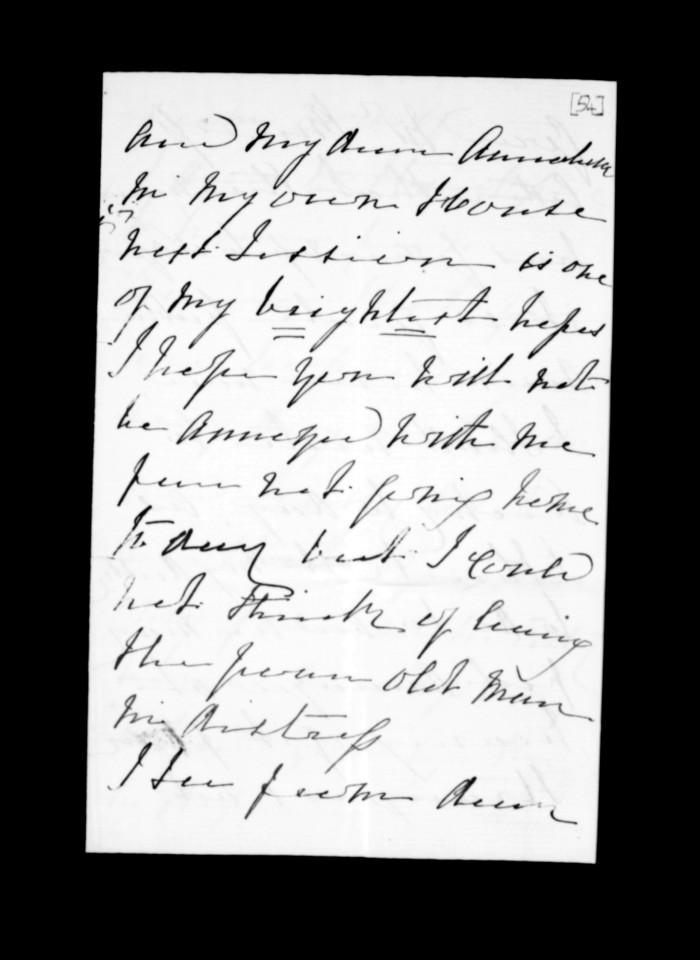 [54]
and my dear Annabella
in my own House
next Session is one
of my brightest hopes
I hope you will not
be annoyed with me
for not going home
to day but I could
not think of leaving
the poor old man
in distress
I see from dear